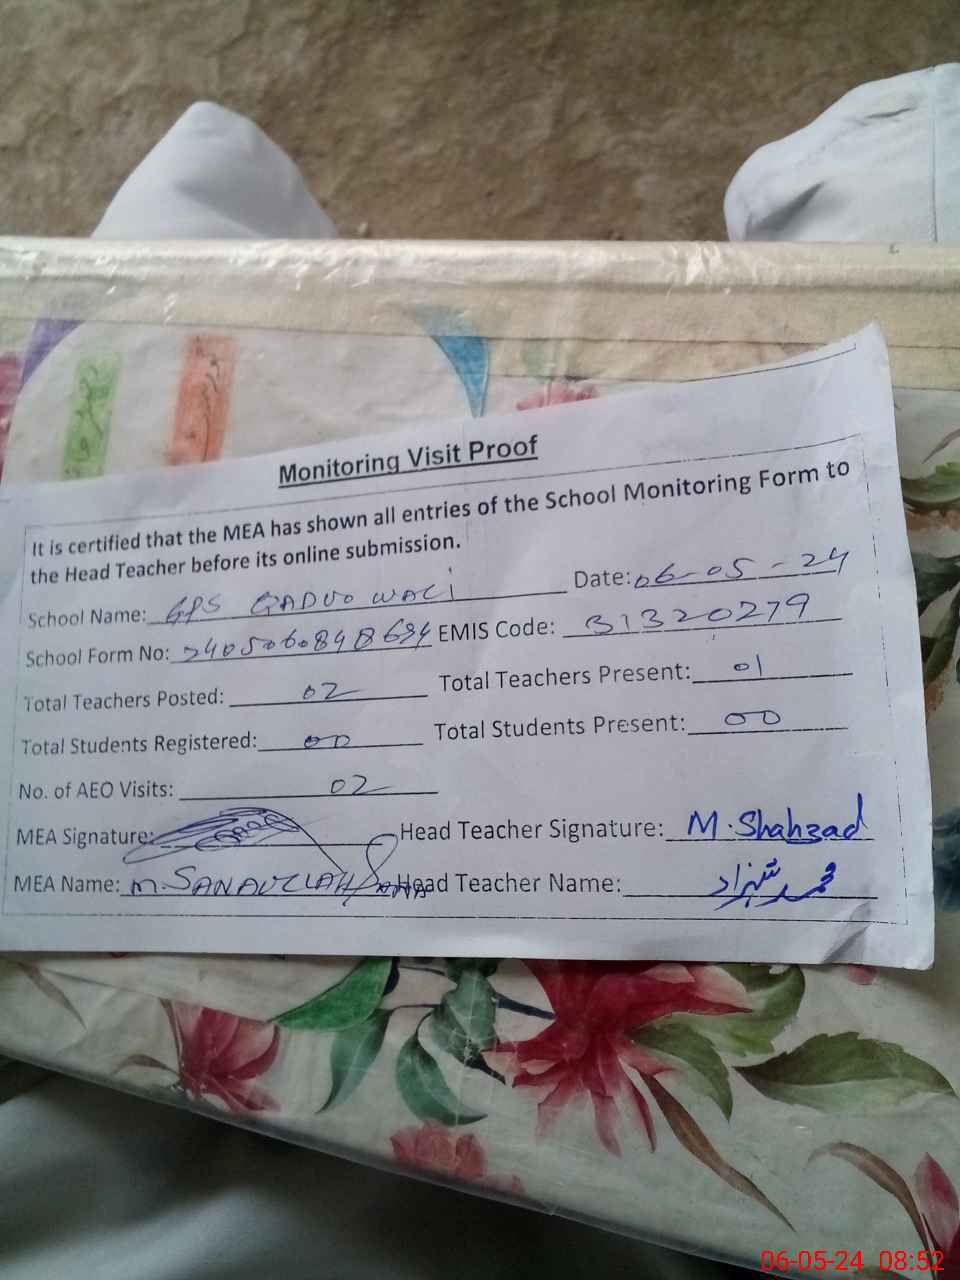 Monitoring Visit Proof
It is certified that the MEA has shown all entries of the School Monitoring Form to
the Head Teacher before its online submission.
School Name: GPS QADUO WALI Date: 06-05-24
School Form No: 2405060848694 EMIS Code: 31320279
Total Teachers Posted: 02 Total Teachers Present: 01
Total Students Registered: 00 Total Students Present: 00
No. of AEO Visits: 02
MEA Signature: Head Teacher Signature: M.Shahzad
MEA Name: M.SANAULLAH Head Teacher Name: محمد شہزاد
06-05-24 08:52